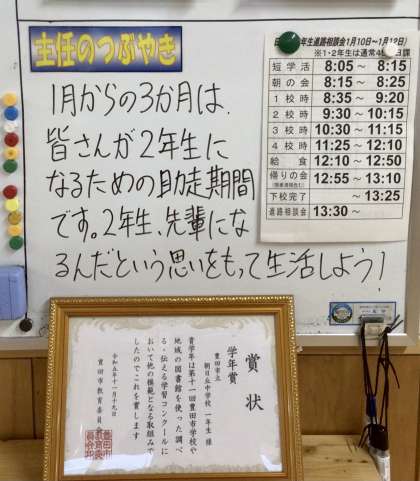 主任のつぶやき
1月からの3か月は、
皆さんが2年生に
なるための助走期間
です。2年生、先輩にな
るんだという思いをもって生活しよう！
年生進路相談会1月10日～1月12日)
※1・2年生は通常4
日課
短学活 8:05 ～ 8:15
朝の会 8:15 ～ 8:25
1校時 8:35 ～ 9:20
2校時 9:30 ～ 10:15
3校時 10:30 ～ 11:15
4校時 11:25 ～ 12:10
給食 12:10 ～ 12:50
帰りの会 12:55 ～ 13:10
下校完了 ～ 13:25
進路相談会 13:30 ～
賞状
学年賞
豊田市立
朝日丘中学校 一年生 様
貴学年は第十一回豊田市学校や
地域の図書館を使った調べ
る・伝える学習コンクールに
おいて他の模範となる取組みで
したのでこれを賞します
令和五年十一月十九日
豊田市教育委員会